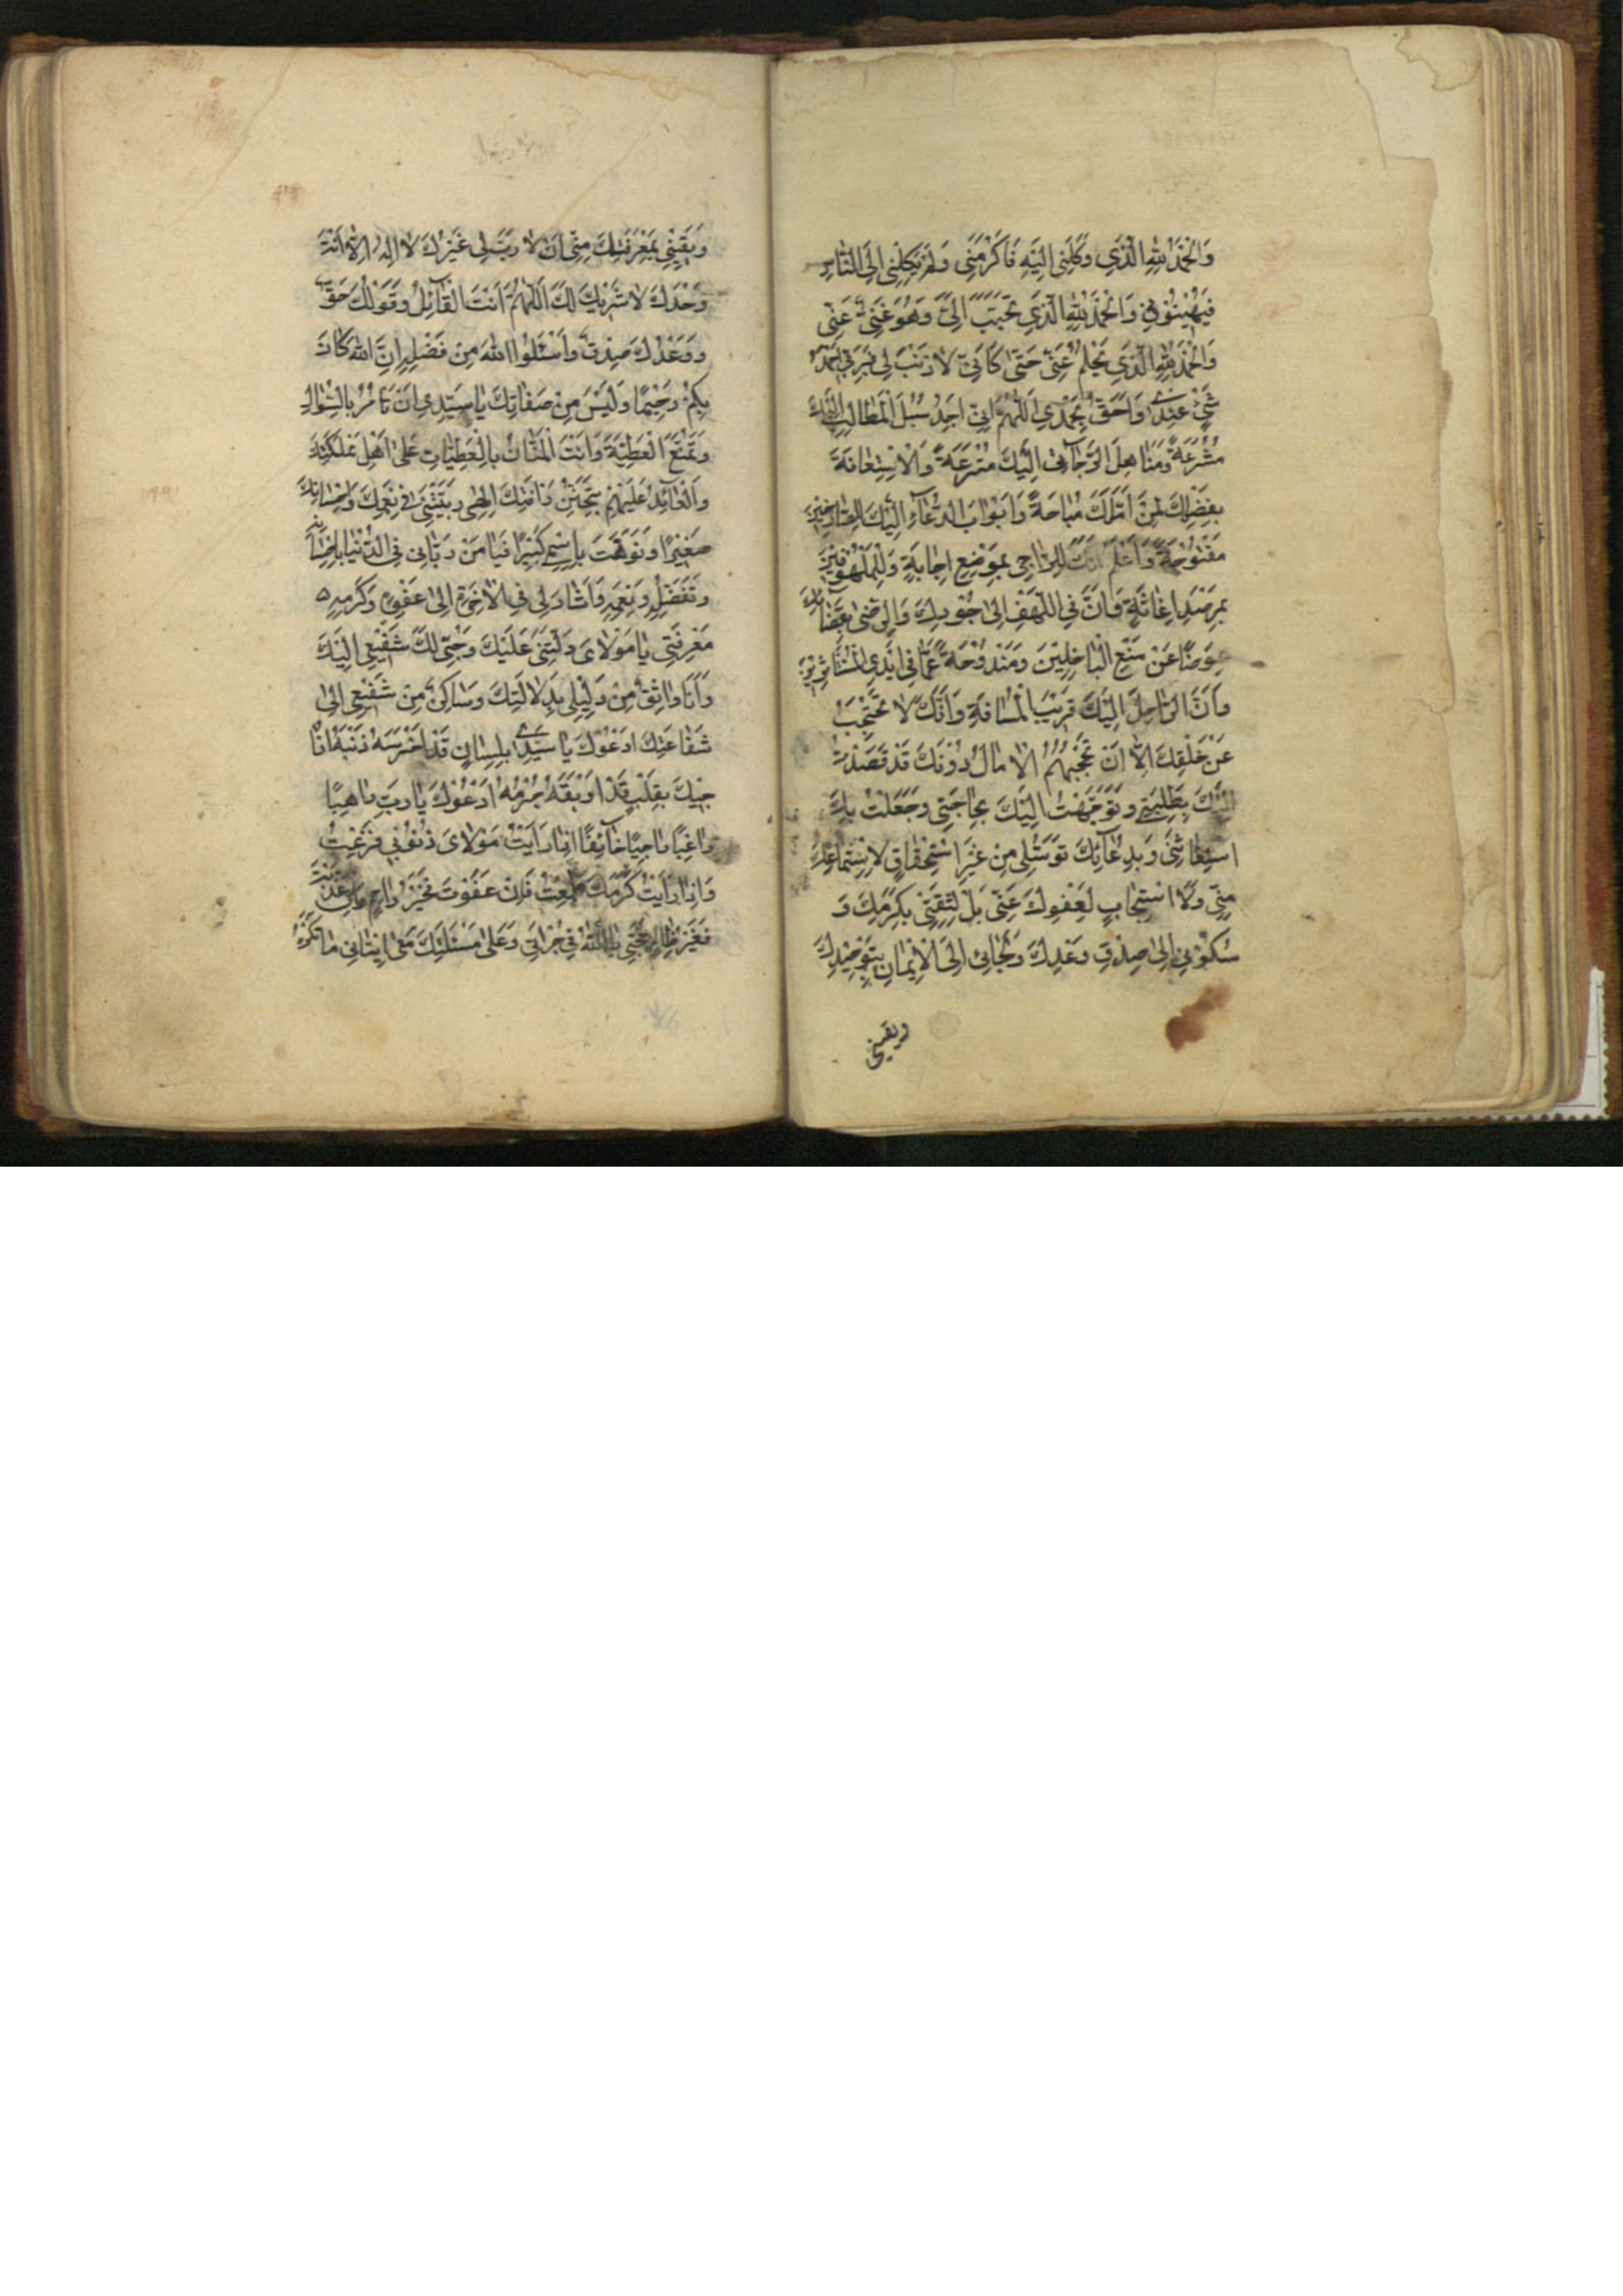 وَالْحَمْدُ لِلّٰهِ الَّذِي وَكَلَنِي اِلَيْهِ فَاَكْرَمَنِي وَلَمْ يَكِلْنِي اِلَى النَّاسِ
فَيُهِينُونِي وَالْحَمْدُ لِلّٰهِ الَّذِي تَحَبَّبَ اِلَيَّ وَهُوَ غَنِيٌّ عَنِّي
وَالْحَمْدُ لِلّٰهِ الَّذِي يَحْلُمُ عَنِّي حَتّٰى كَاَنِّي لَا ذَنْبَ لِي فَرَبِّي اَحْمَدُ
شَيْءٍ عِنْدِي وَاَحَقُّ بِحَمْدِي اَللّٰهُمَّ اِنِّي اَجِدُ سُبُلَ الْمَطَالِبِ اِلَيْكَ
مُشْرَعَةً وَمَنَاهِلَ الرَّجَاءِ اِلَيْكَ مُتْرَعَةً وَالْاِسْتِعَانَةَ
بِفَضْلِكَ لِمَنْ اَمَّلَكَ مُبَاحَةً وَاَبْوَابَ الدُّعَاءِ اِلَيْكَ لِلصَّارِخِينَ
مَفْتُوحَةً وَاَعْلَمُ اَنَّكَ لِلرَّاجِي بِمَوْضِعِ اِجَابَةٍ وَلِلْمَلْهُوفِينَ
بِمَرْصَدِ اِغَاثَةٍ وَاَنَّ فِي اللَّهَفِ اِلٰى جُودِكَ وَالرِّضٰى بِقَضَائِكَ
عِوَضًا عَنْ مَنْعِ الْبَاخِلِينَ وَمَنْدُوحَةً عَمَّا فِي اَيْدِي الْمُسْتَأْثِرِينَ
وَاَنَّ الرَّاحِلَ اِلَيْكَ قَرِيبُ الْمَسَافَةِ وَاَنَّكَ لَا تَحْتَجِبُ
عَنْ خَلْقِكَ اِلَّا اَنْ تَحْجُبَهُمُ الْاٰمَالُ دُونَكَ قَدْ قَصَدْتُ
اِلَيْكَ بِطَلِبَتِي وَتَوَجَّهْتُ اِلَيْكَ بِحَاجَتِي وَجَعَلْتُ بِكَ
اسْتِغَاثَتِي وَبِدُعَائِكَ تَوَسُّلِي مِنْ غَيْرِ اسْتِحْقَاقٍ لِاسْتِمَاعِكَ
مِنِّي وَلَا اسْتِيجَابٍ لِعَفْوِكَ عَنِّي بَلْ لِثِقَتِي بِكَرَمِكَ وَ
سُكُونِي اِلٰى صِدْقِ وَعْدِكَ وَلَجَائِي اِلَى الْاِيمَانِ بِتَوْحِيدِكَ
وَيَقِينِي
وَيَقِينِي بِمَعْرِفَتِكَ مِنِّي اَنْ لَا رَبَّ لِي غَيْرُكَ لَا اِلٰهَ اِلَّا اَنْتَ
وَحْدَكَ لَا شَرِيكَ لَكَ اَللّٰهُمَّ اَنْتَ الْقَائِلُ وَقَوْلُكَ حَقٌّ
وَوَعْدُكَ صِدْقٌ وَاسْئَلُوا اللّٰهَ مِنْ فَضْلِهِ اِنَّ اللّٰهَ كَانَ
بِكُمْ رَحِيمًا وَلَيْسَ مِنْ صِفَاتِكَ يَا سَيِّدِي اَنْ تَأْمُرَ بِالسُّؤَالِ
وَتَمْنَعَ الْعَطِيَّةَ وَاَنْتَ الْمَنَّانُ بِالْعَطِيَّاتِ عَلٰى اَهْلِ مَمْلَكَتِكَ
وَالْعَائِدُ عَلَيْهِمْ بِتَحَنُّنِ رَأْفَتِكَ اِلٰهِي رَبَّيْتَنِي فِي نِعَمِكَ وَاِحْسَانِكَ
صَغِيرًا وَنَوَّهْتَ بِاِسْمِي كَبِيرًا فَيَا مَنْ رَبَّانِي فِي الدُّنْيَا بِاِحْسَانِهِ
وَتَفَضُّلِهِ وَنِعَمِهِ وَاَشَارَ لِي فِي الْاٰخِرَةِ اِلٰى عَفْوِهِ وَكَرَمِهِ
مَعْرِفَتِي يَا مَوْلَايَ دَلَّتْنِي عَلَيْكَ وَحُبِّي لَكَ شَفِيعِي اِلَيْكَ
وَاَنَا وَاثِقٌ مِنْ دَلِيلِي بِدَلَالَتِكَ وَسَاكِنٌ مِنْ شَفِيعِي اِلٰى
شَفَاعَتِكَ اَدْعُوكَ يَا سَيِّدِي بِلِسَانٍ قَدْ اَخْرَسَهُ ذَنْبُهُ اُنَا
جِيكَ بِقَلْبٍ قَدْ اَوْبَقَهُ جُرْمُهُ اَدْعُوكَ يَا رَبِّ رَاهِبًا
رَاغِبًا رَاجِيًا خَائِفًا اِذَا رَاَيْتُ مَوْلَايَ ذُنُوبِي فَزِعْتُ
وَاِذَا رَاَيْتُ كَرَمَكَ طَمِعْتُ فَاِنْ عَفَوْتَ فَخَيْرُ رَاحِمٍ وَاِنْ عَذَّبْتَ
فَغَيْرُ ظَالِمٍ حُجَّتِي يَا اَللّٰهُ فِي جُرْاَتِي عَلٰى مَسْئَلَتِكَ مَعَ اِتْيَانِي مَا تَكْرَهُ